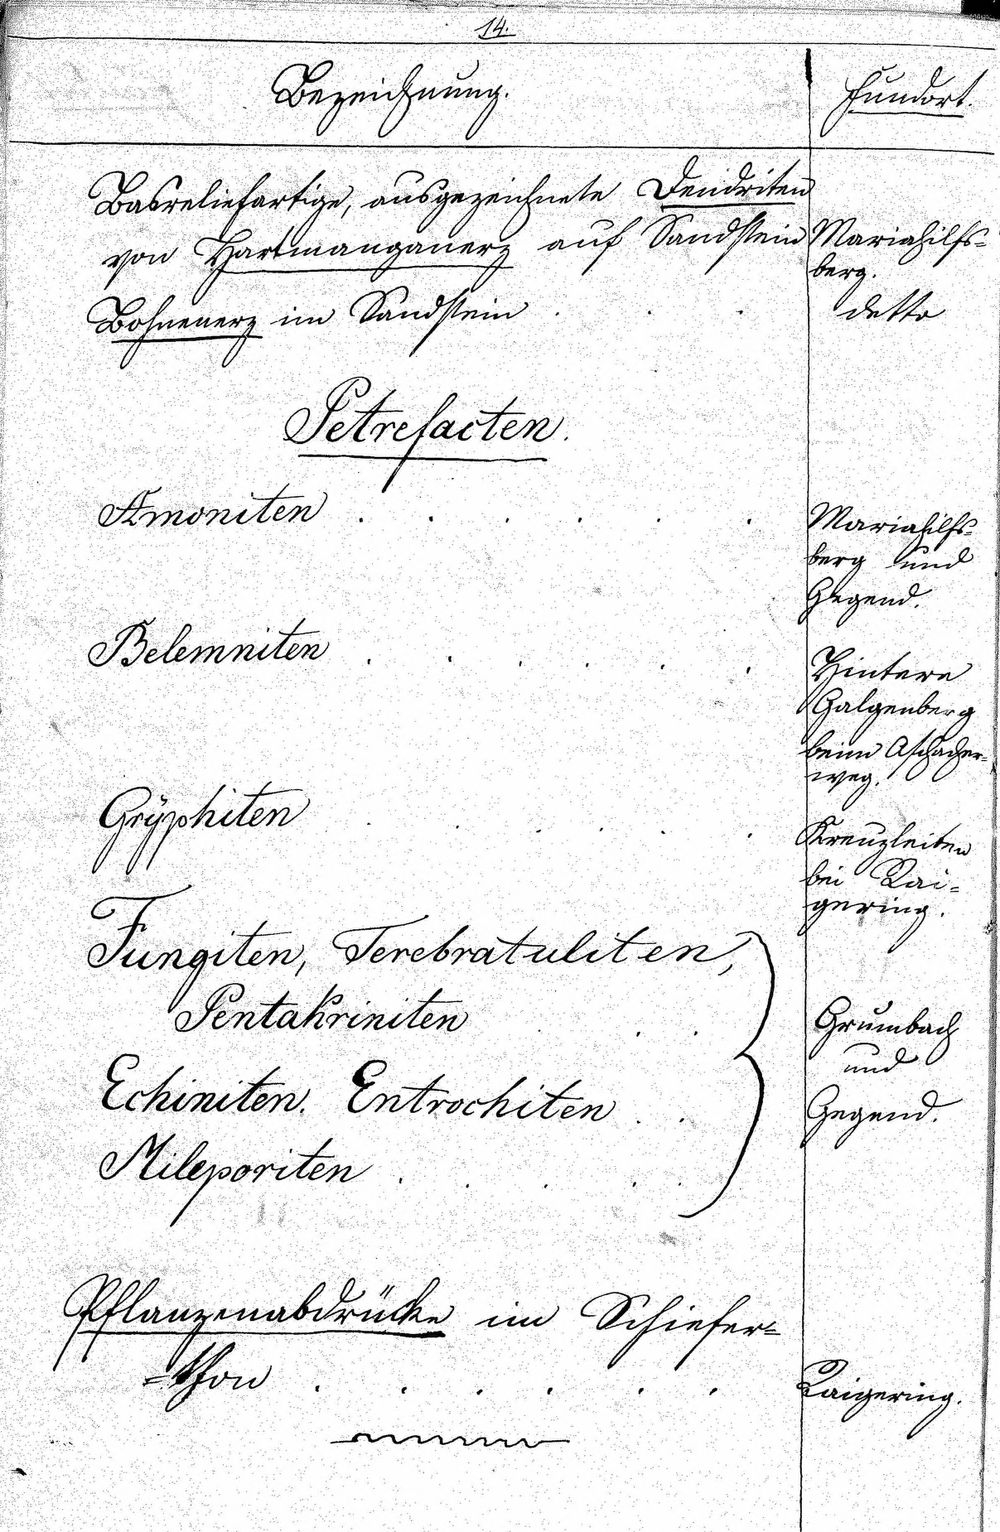 14.
Bezeichnung.
Fundort.
Basreliefartige, ausgezeichnete Dendriten
von Hartmanganerz auf Sandstein
Mariahilfs-
berg.
Bohnenerz im Sandstein . . .
detto
Petrefacten.
Amoniten . . . . . .
Mariahilfs-
berg und
Gegend.
Belemniten . . . . . .
Hintere
Galgenberg
beim Aschacher-
weg.
Grÿphiten . . . . . .
Kreuzleiten
bei Rai-
gering.
Fungiten, Terebratuliten,
Pentakriniten . . .
Grumbach
und
Echiniten. Entrochiten . .
Gegend.
Mileporiten . . . . .
Pflanzenabdrücke im Schiefer=
=thon . . . . . .
Raigering.